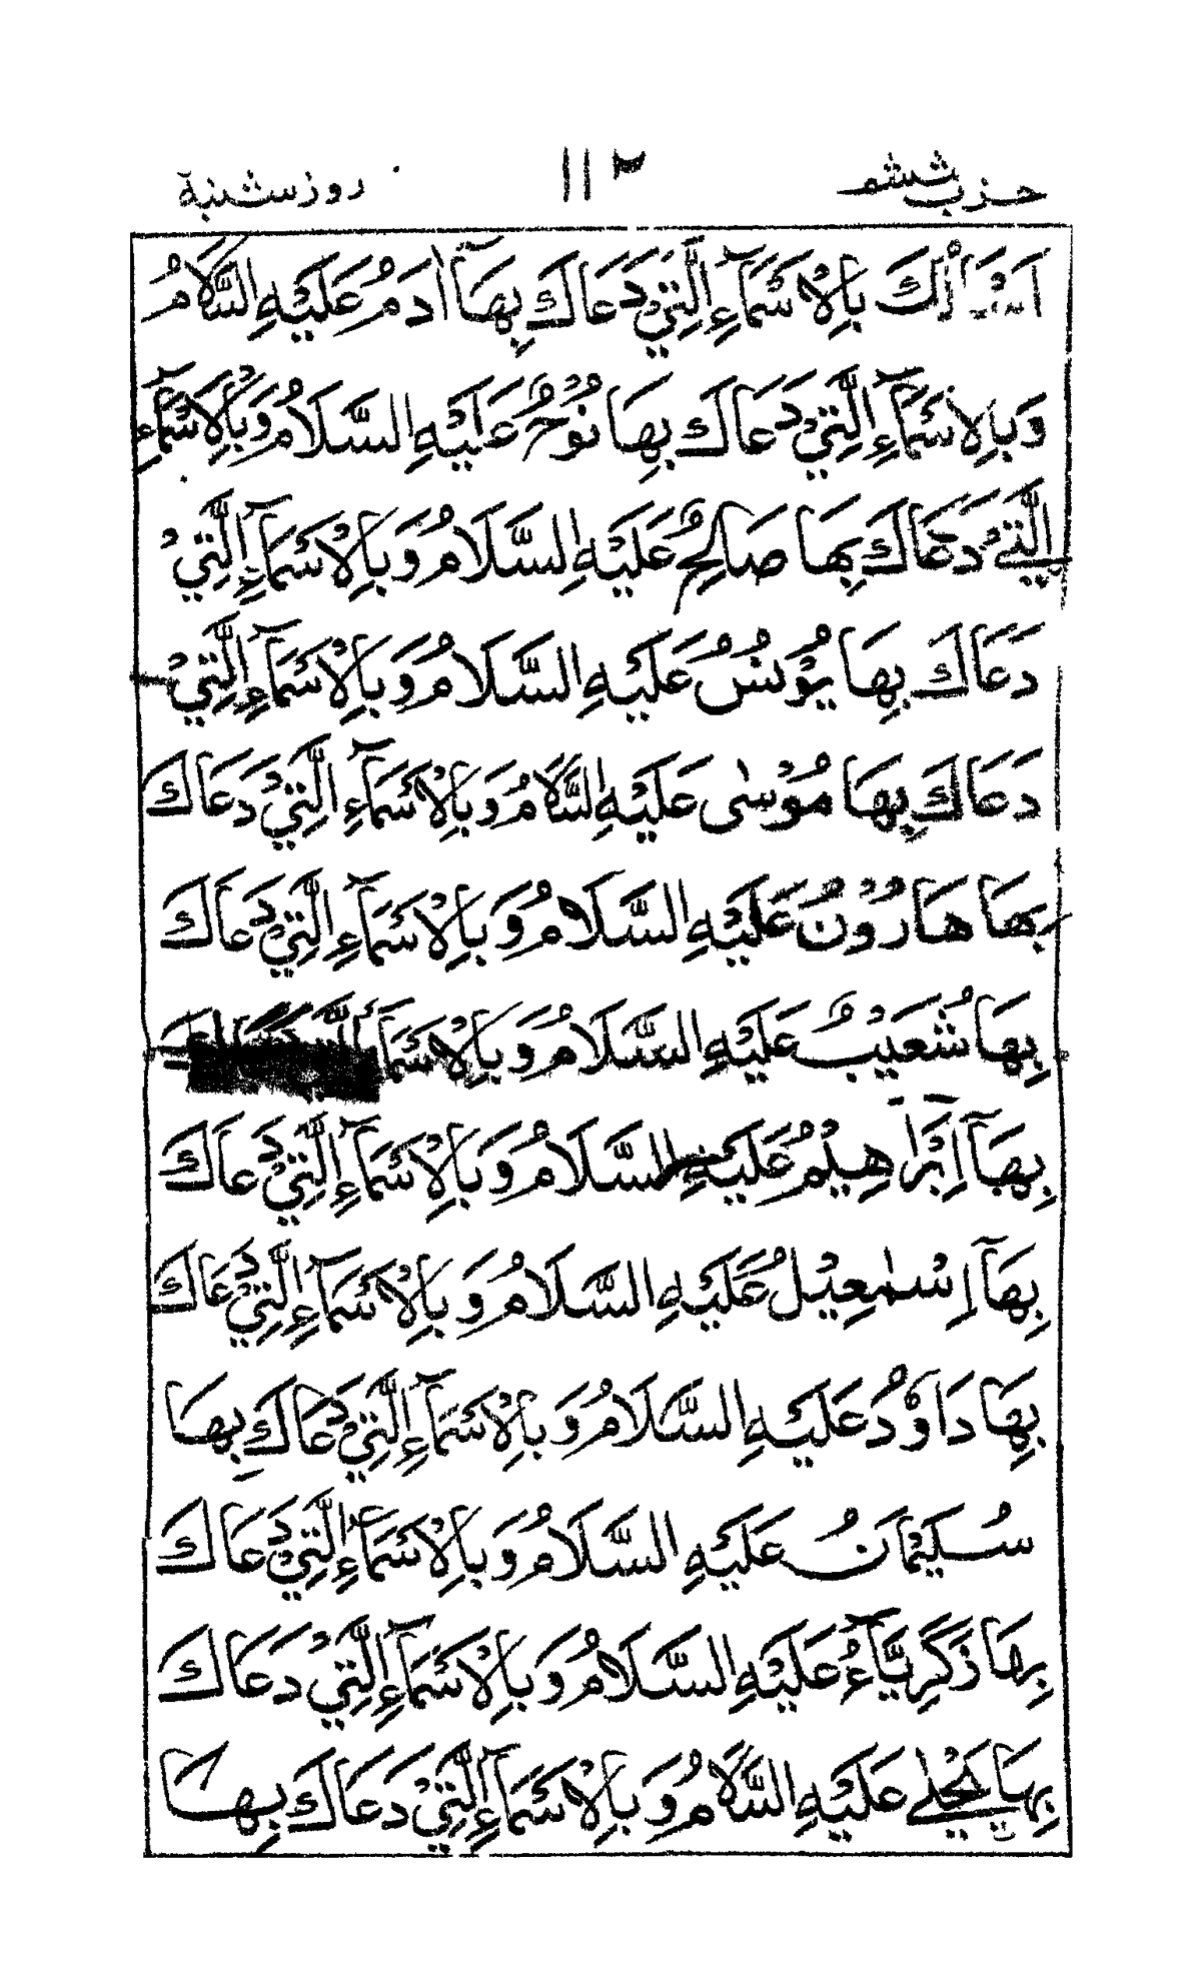 حزب ششم ١١٢ روز شنبة
اَسْئَلُكَ بِالْاَسْمَآءِ الَّتِيْ دَعَاكَ بِهَآ اٰدَمُ عَلَيْهِ السَّلَامُ
وَبِالْاَسْمَآءِ الَّتِيْ دَعَاكَ بِهَا نُوْحٌ عَلَيْهِ السَّلَامُ وَبِالْاَسْمَآءِ
الَّتِيْ دَعَاكَ بِهَا صَالِحٌ عَلَيْهِ السَّلَامُ وَبِالْاَسْمَآءِ الَّتِيْ
دَعَاكَ بِهَا يُوْنُسُ عَلَيْهِ السَّلَامُ وَبِالْاَسْمَآءِ الَّتِيْ
دَعَاكَ بِهَا مُوْسٰى عَلَيْهِ السَّلَامُ وَبِالْاَسْمَآءِ الَّتِيْ دَعَاكَ
بِهَا هَارُوْنُ عَلَيْهِ السَّلَامُ وَبِالْاَسْمَآءِ الَّتِيْ دَعَاكَ
بِهَا شُعَيْبٌ عَلَيْهِ السَّلَامُ وَبِالْاَسْمَآ
بِهَآ اِبْرَاهِيْمُ عَلَيْهِ السَّلَامُ وَبِالْاَسْمَآءِ الَّتِيْ دَعَاكَ
بِهَآ اِسْمٰعِيْلُ عَلَيْهِ السَّلَامُ وَبِالْاَسْمَآءِ الَّتِيْ دَعَاكَ
بِهَا دَاوٗدُ عَلَيْهِ السَّلَامُ وَبِالْاَسْمَآءِ الَّتِيْ دَعَاكَ بِهَا
سُلَيْمَانُ عَلَيْهِ السَّلَامُ وَبِالْاَسْمَآءِ الَّتِيْ دَعَاكَ
بِهَا زَكَرِيَّآءُ عَلَيْهِ السَّلَامُ وَبِالْاَسْمَآءِ الَّتِيْ دَعَاكَ
بِهَا يَحْيٰے عَلَيْهِ السَّلَامُ وَبِالْاَسْمَآءِ الَّتِيْ دَعَاكَ بِهَا